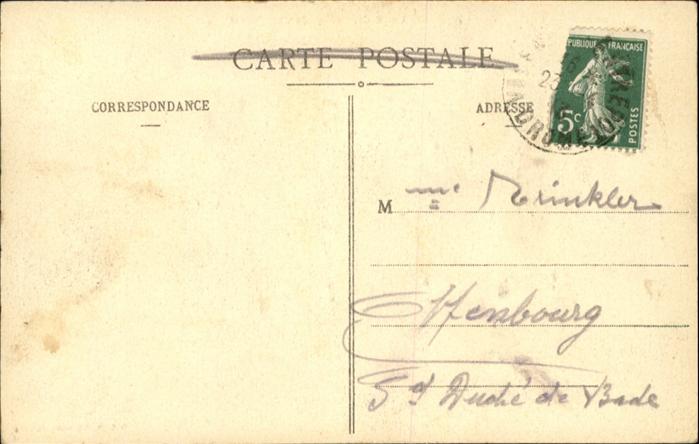 CARTE POSTALE
CORRESPONDANCE
ADRESSE
REPUBLIQUE FRANÇAISE
5c
POSTES
23
DROME
M me Trinkler
Offenbourg
Gd Duché de Bade